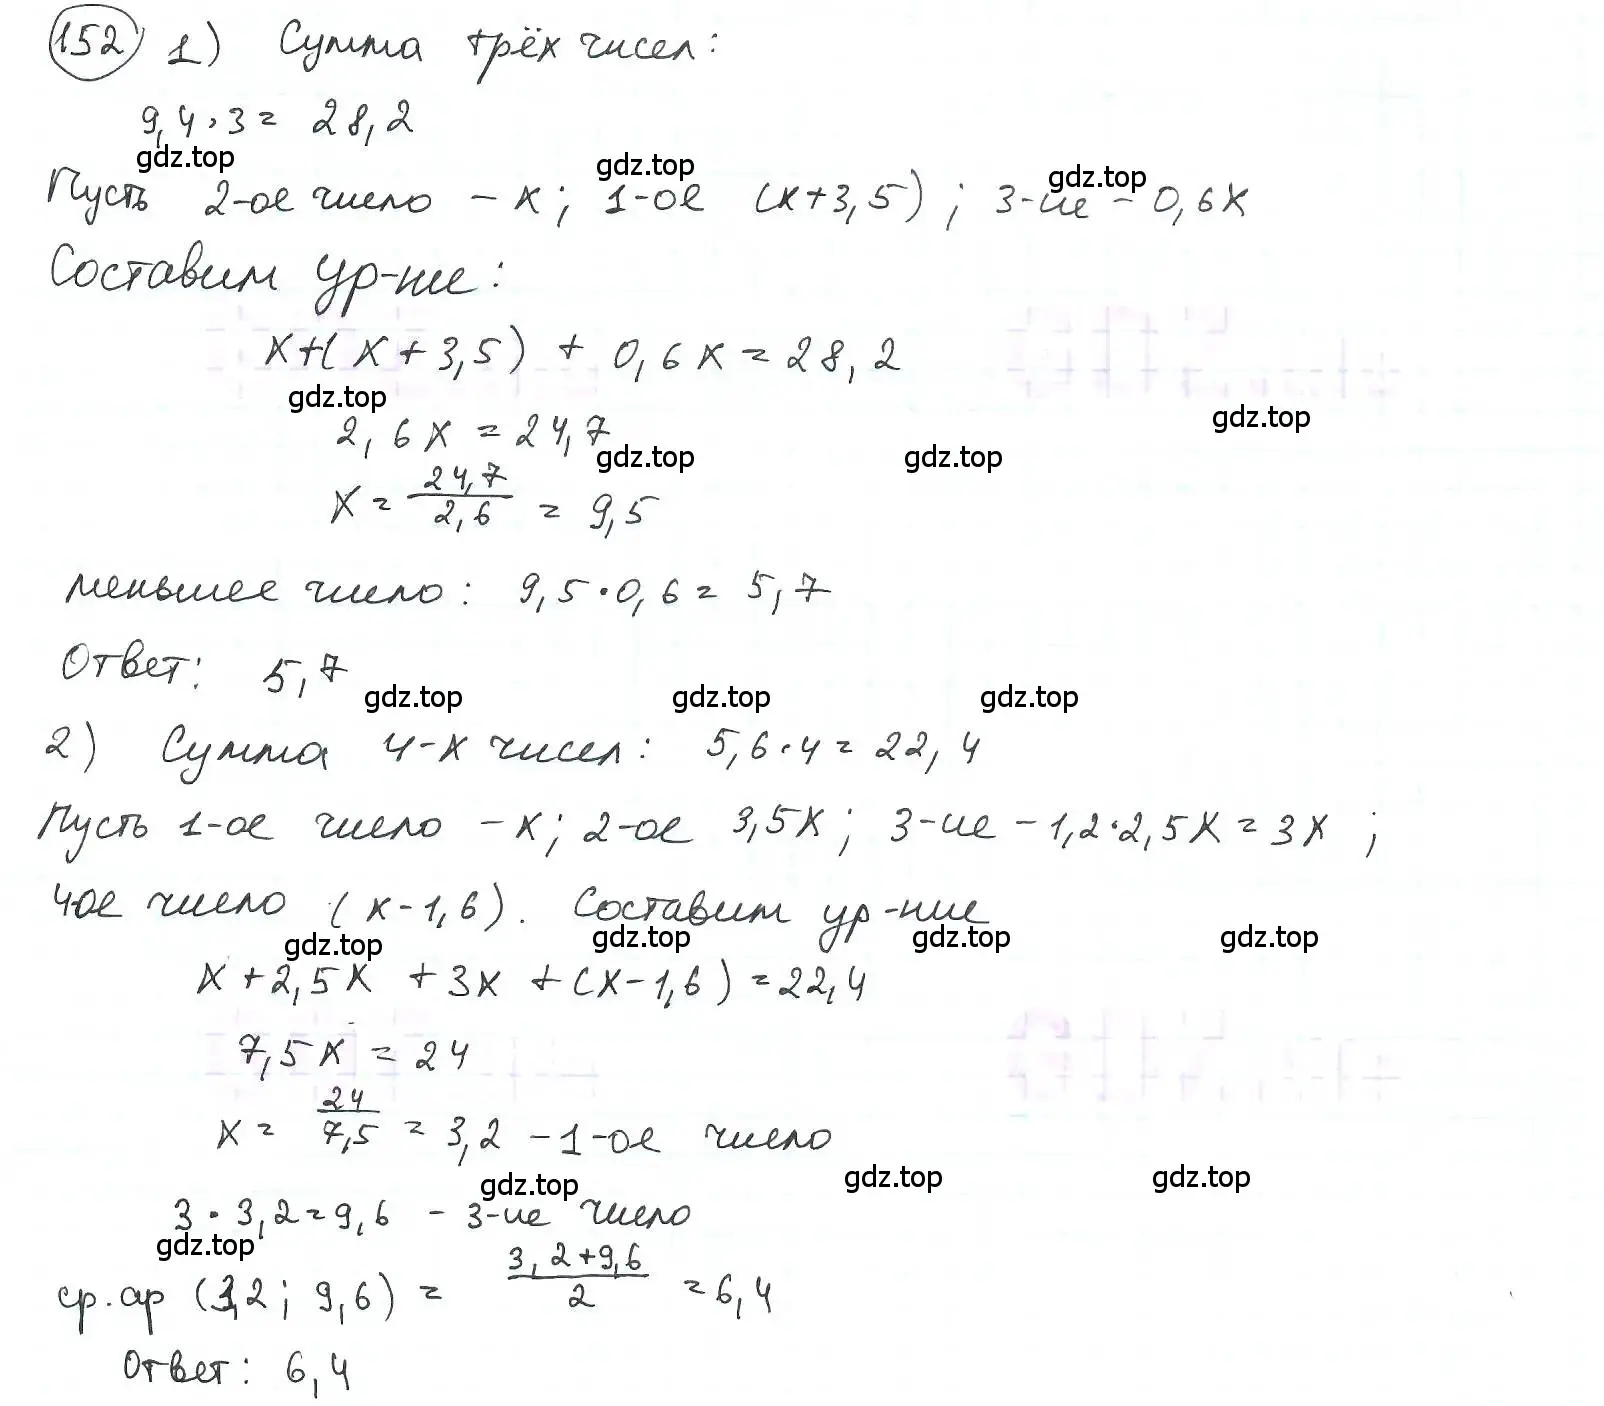 152 1) Сумма трёх чисел:
9,4·3=28,2
gdz.top gdz.top gdz.top
Пусть 2-ое число - x; 1-ое (x+3,5); 3-ие - 0,6x
Составим ур-ние:
x+(x+3,5)+0,6x=28,2
gdz.top gdz.top
2,6x=24,7
gdz.top gdz.top
x=24,7/2,6=9,5
меньшее число: 9,5·0,6=5,7
Ответ: 5,7
gdz.top gdz.top gdz.top
2) Сумма 4-х чисел: 5,6·4=22,4
Пусть 1-ое число - x; 2-ое 3,5x; 3-ие - 1,2·2,5x=3x;
4ое число (x-1,6). Составим ур-ние
gdz.top gdz.top gdz.top gdz.top
x+2,5x+3x+(x-1,6)=22,4
7,5x=24
x=24/7,5=3,2 - 1-ое число
gdz.top gdz.top gdz.top
3·3,2=9,6 - 3-ие число
gdz.top
ср.ар (3,2; 9,6)=(3,2+9,6)/2=6,4
Ответ: 6,4